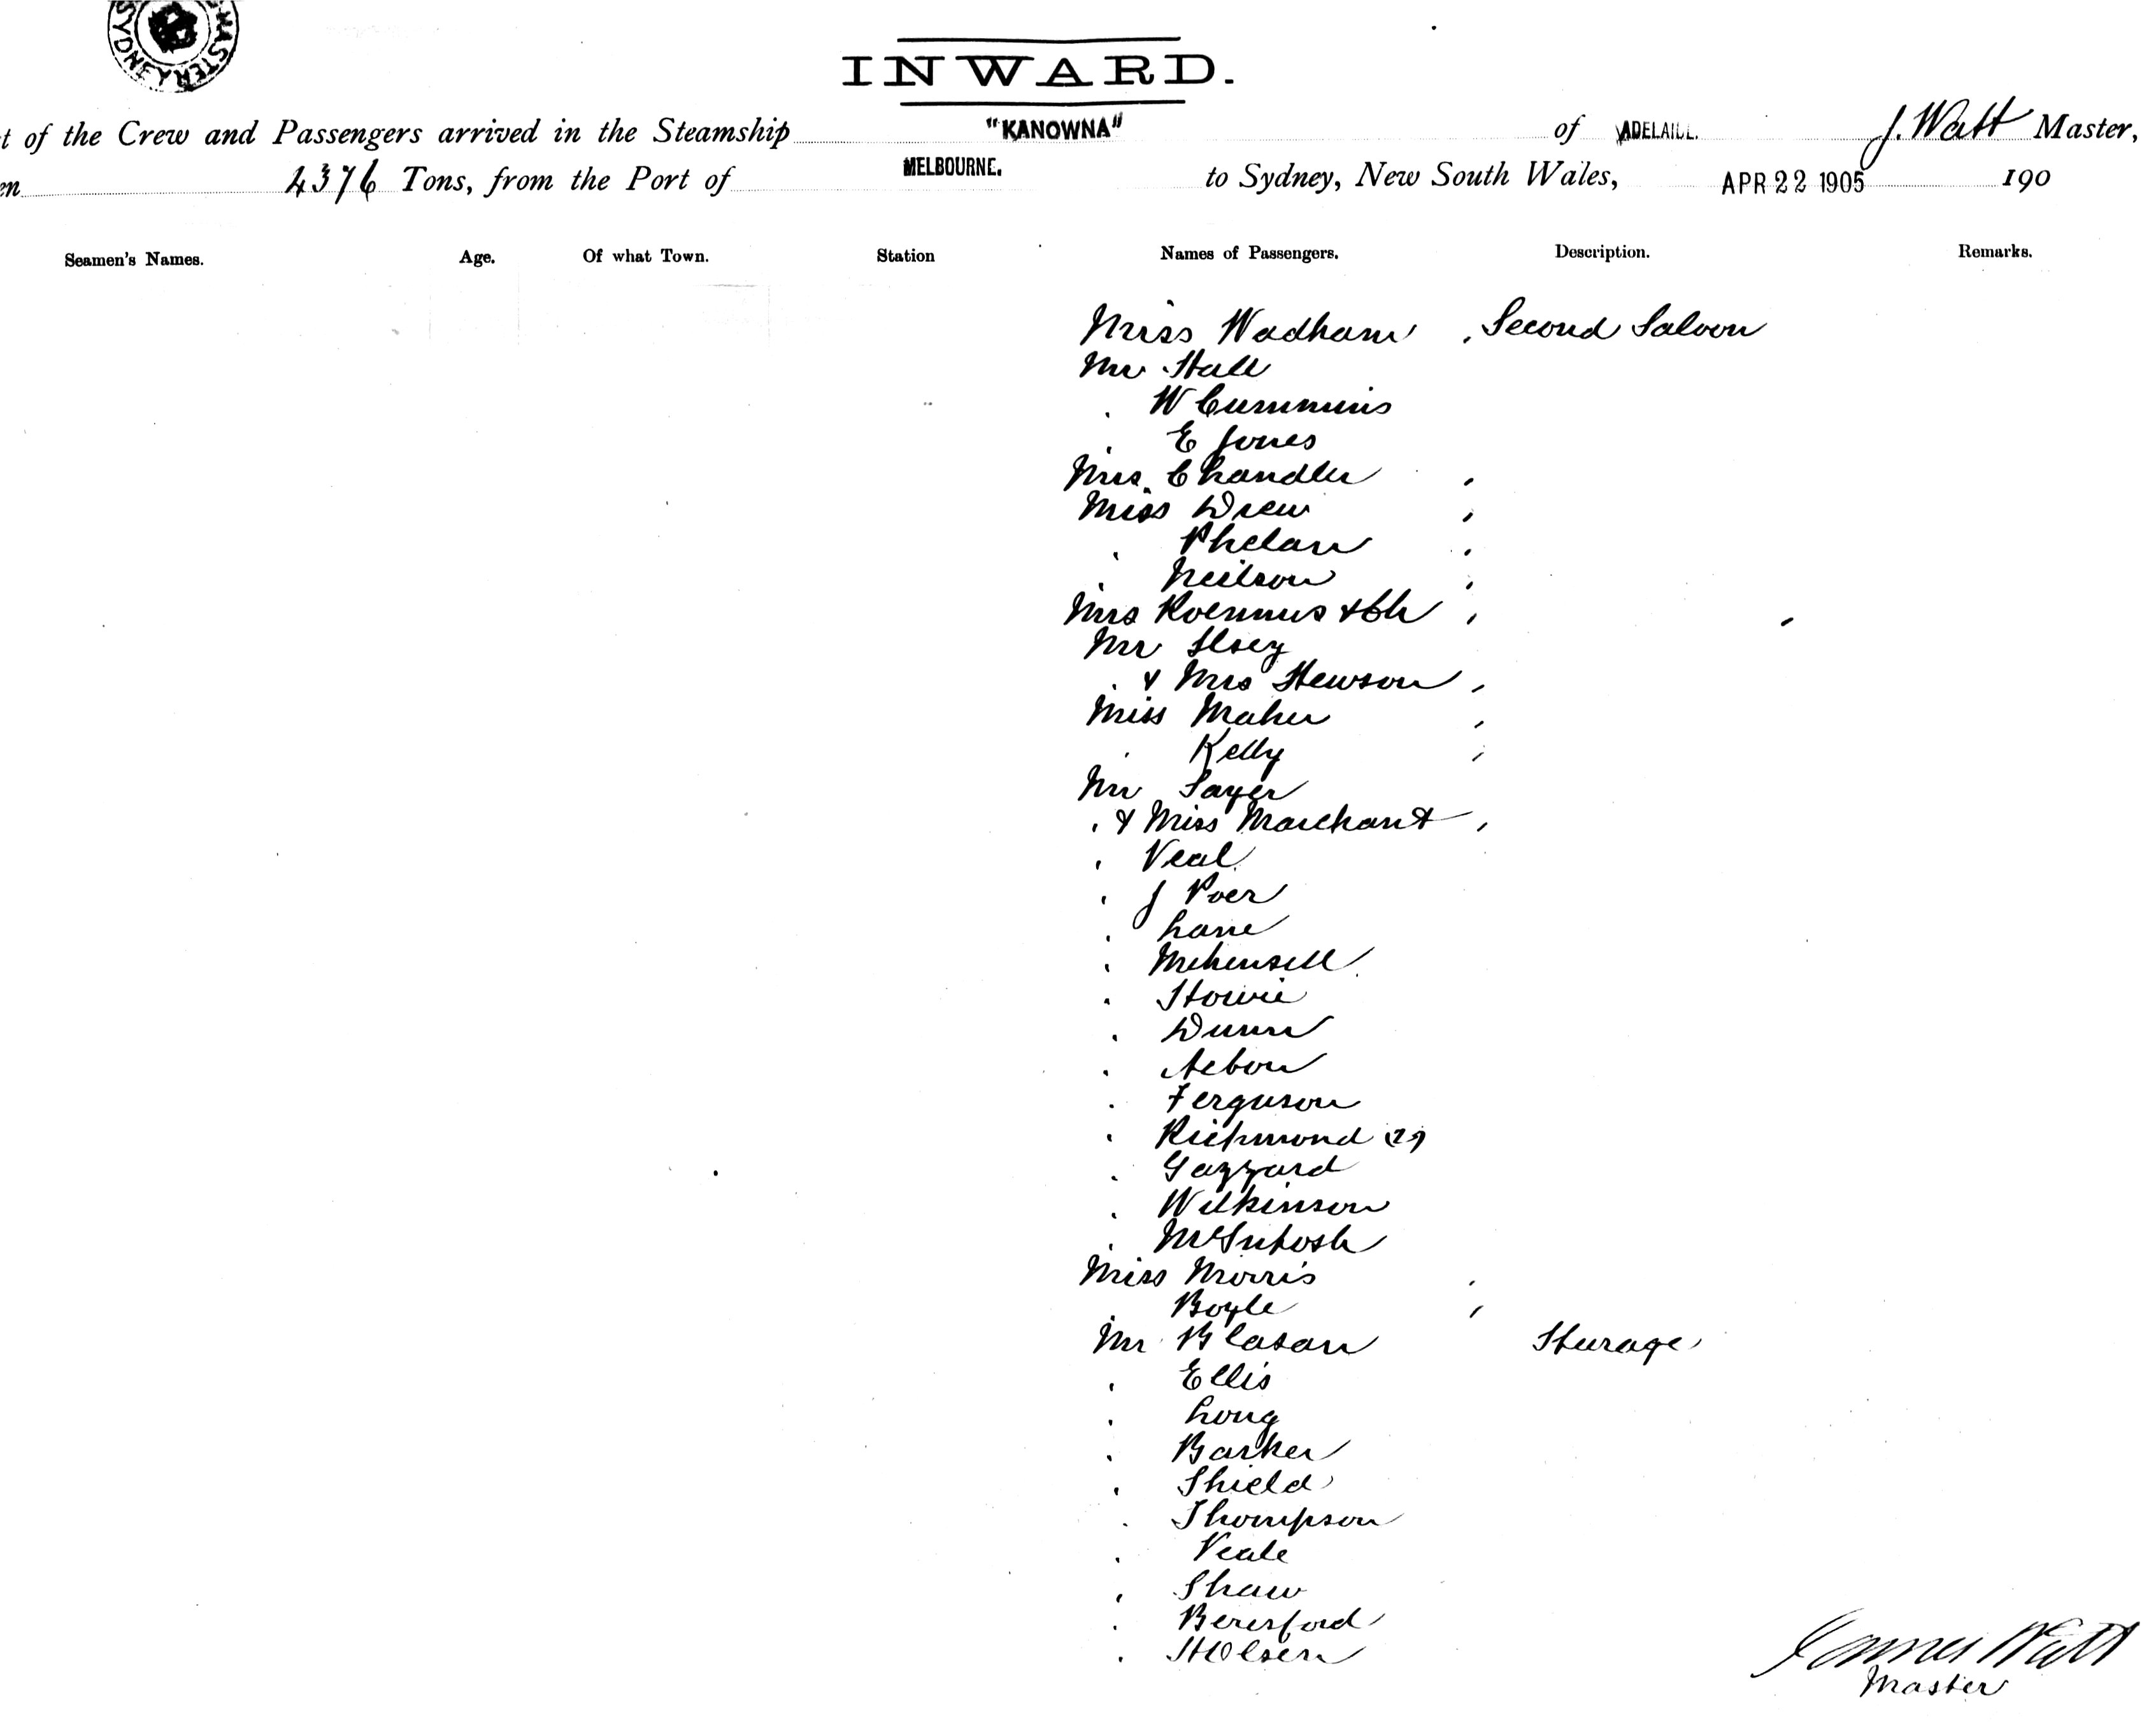 SYDNEY
MASTER
INWARD.
t of the Crew and Passengers arrived in the Steamship "KANOWNA" of ADELAIDE. J. Watt Master,
en 4376 Tons, from the Port of MELBOURNE. to Sydney, New South Wales, APR 22 1905 190
Seamen's Names. Age. Of what Town. Station Names of Passengers. Description. Remarks.
Miss Wadham Second Saloon
Mr Hall
" W Cummins
" E Jones
Mrs Chandler "
Miss Drew "
" Phelan "
" Neilson "
Mrs & Ch "
Mr Ilsey
" & Mrs Hewson "
Miss Maher "
" Kelly "
Mr Sayer
" & Miss Marchant "
" Veal
" J Poer
" Lane
"
" Howie
" Dunn
" Acbon
" Ferguson
" Richmond (2)
" Gazzard
" Wilkinson
" McIntosh
Miss Morris "
" Boyle "
Mr Blasan Steerage
" Ellis
" Long
" Barker
" Shield
" Thompson
" Veale
" Shaw
" Beresford
" H Olsen
James Watt
Master